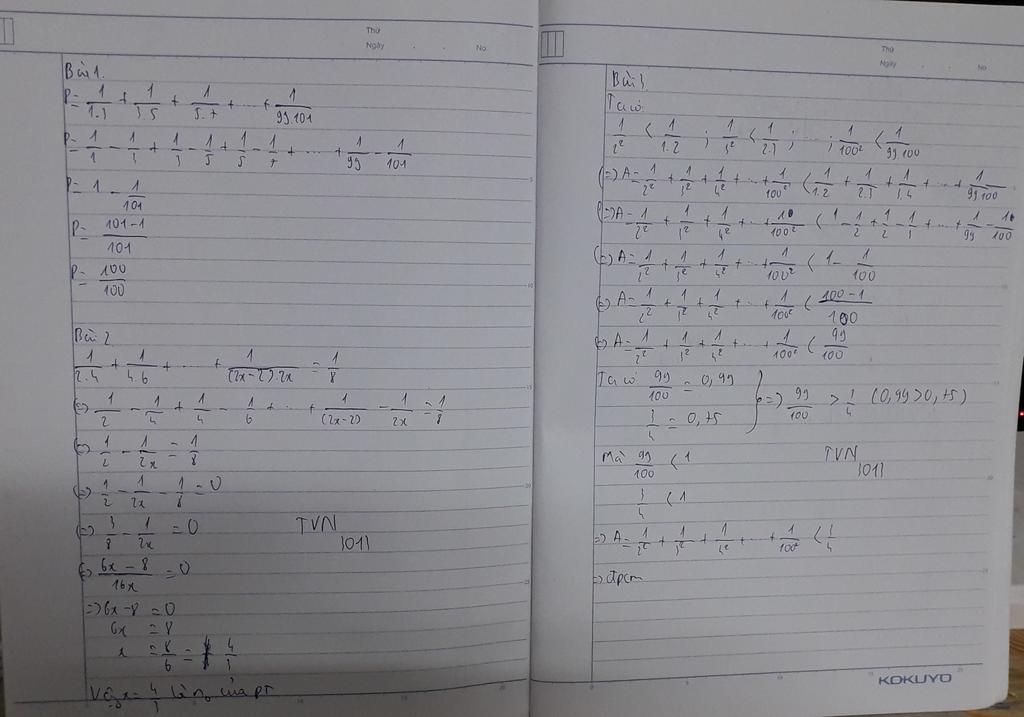 Thứ
Ngày . . No.
Bài 1.
P = 1/1.3 + 1/3.5 + 1/5.7 + ... + 1/99.101
P = 1/1 - 1/3 + 1/3 - 1/5 + 1/5 - 1/7 + ... + 1/99 - 1/101
P = 1 - 1/101
P = (101-1)/101
P = 100/100
Bài 2
1/2.4 + 1/4.6 + ... + 1/(2x-2).2x = 1/8
(=) 1/2 - 1/4 + 1/4 - 1/6 + ... + 1/(2x-2) - 1/2x = 1/8
(=) 1/2 - 1/2x = 1/8
(=) 1/2 - 1/2x - 1/8 = 0
(=) 3/8 - 1/2x = 0 TVN
3011
(=) (6x - 8)/16x = 0
=) 6x - 8 = 0
6x = 8
x = 8/6 = 4/3
Vậy x = 4/3 là no của pT
Thứ
Ngày . . No
Bài 3
Ta có
1/2² < 1/1.2 ; 1/3² < 1/2.3 ; ... ; 1/100² < 1/99.100
(=) A = 1/2² + 1/3² + 1/4² + ... + 1/100² < 1/1.2 + 1/2.3 + 1/3.4 + ... + 1/99.100
(=) A = 1/2² + 1/3² + 1/4² + ... + 1/100² < 1 - 1/2 + 1/2 - 1/3 + ... + 1/99 - 1/100
(=) A = 1/2² + 1/3² + 1/4² + ... + 1/100² < 1 - 1/100
(=) A = 1/2² + 1/3² + 1/4² + ... + 1/100² < (100-1)/100
(=) A = 1/2² + 1/3² + 1/4² + ... + 1/100² < 99/100
Ta có 99/100 = 0,99
3/4 = 0,75 } =) 99/100 > 3/4 (0,99 > 0,75)
Mà 99/100 < 1 TVN
3011
3/4 < 1
=) A = 1/2² + 1/3² + 1/4² + ... + 1/100² < 3/4
=) đpcm
KOKUYO